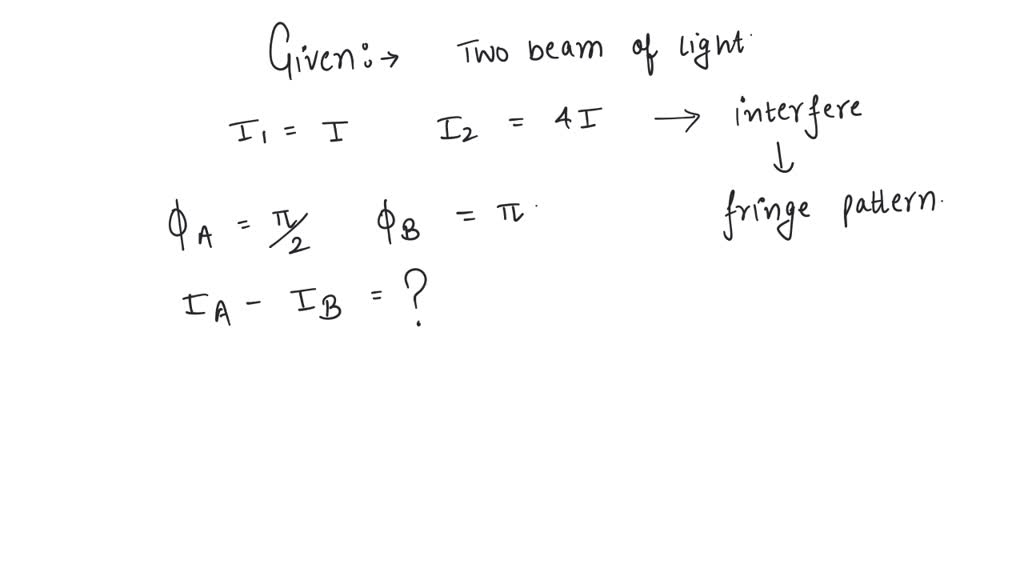 Given:→ Two beam of light.
I₁ = I I₂ = 4I → interfere
↓
ϕ_A = π/2 ϕ_B = π. fringe pattern.
I_A - I_B = ?